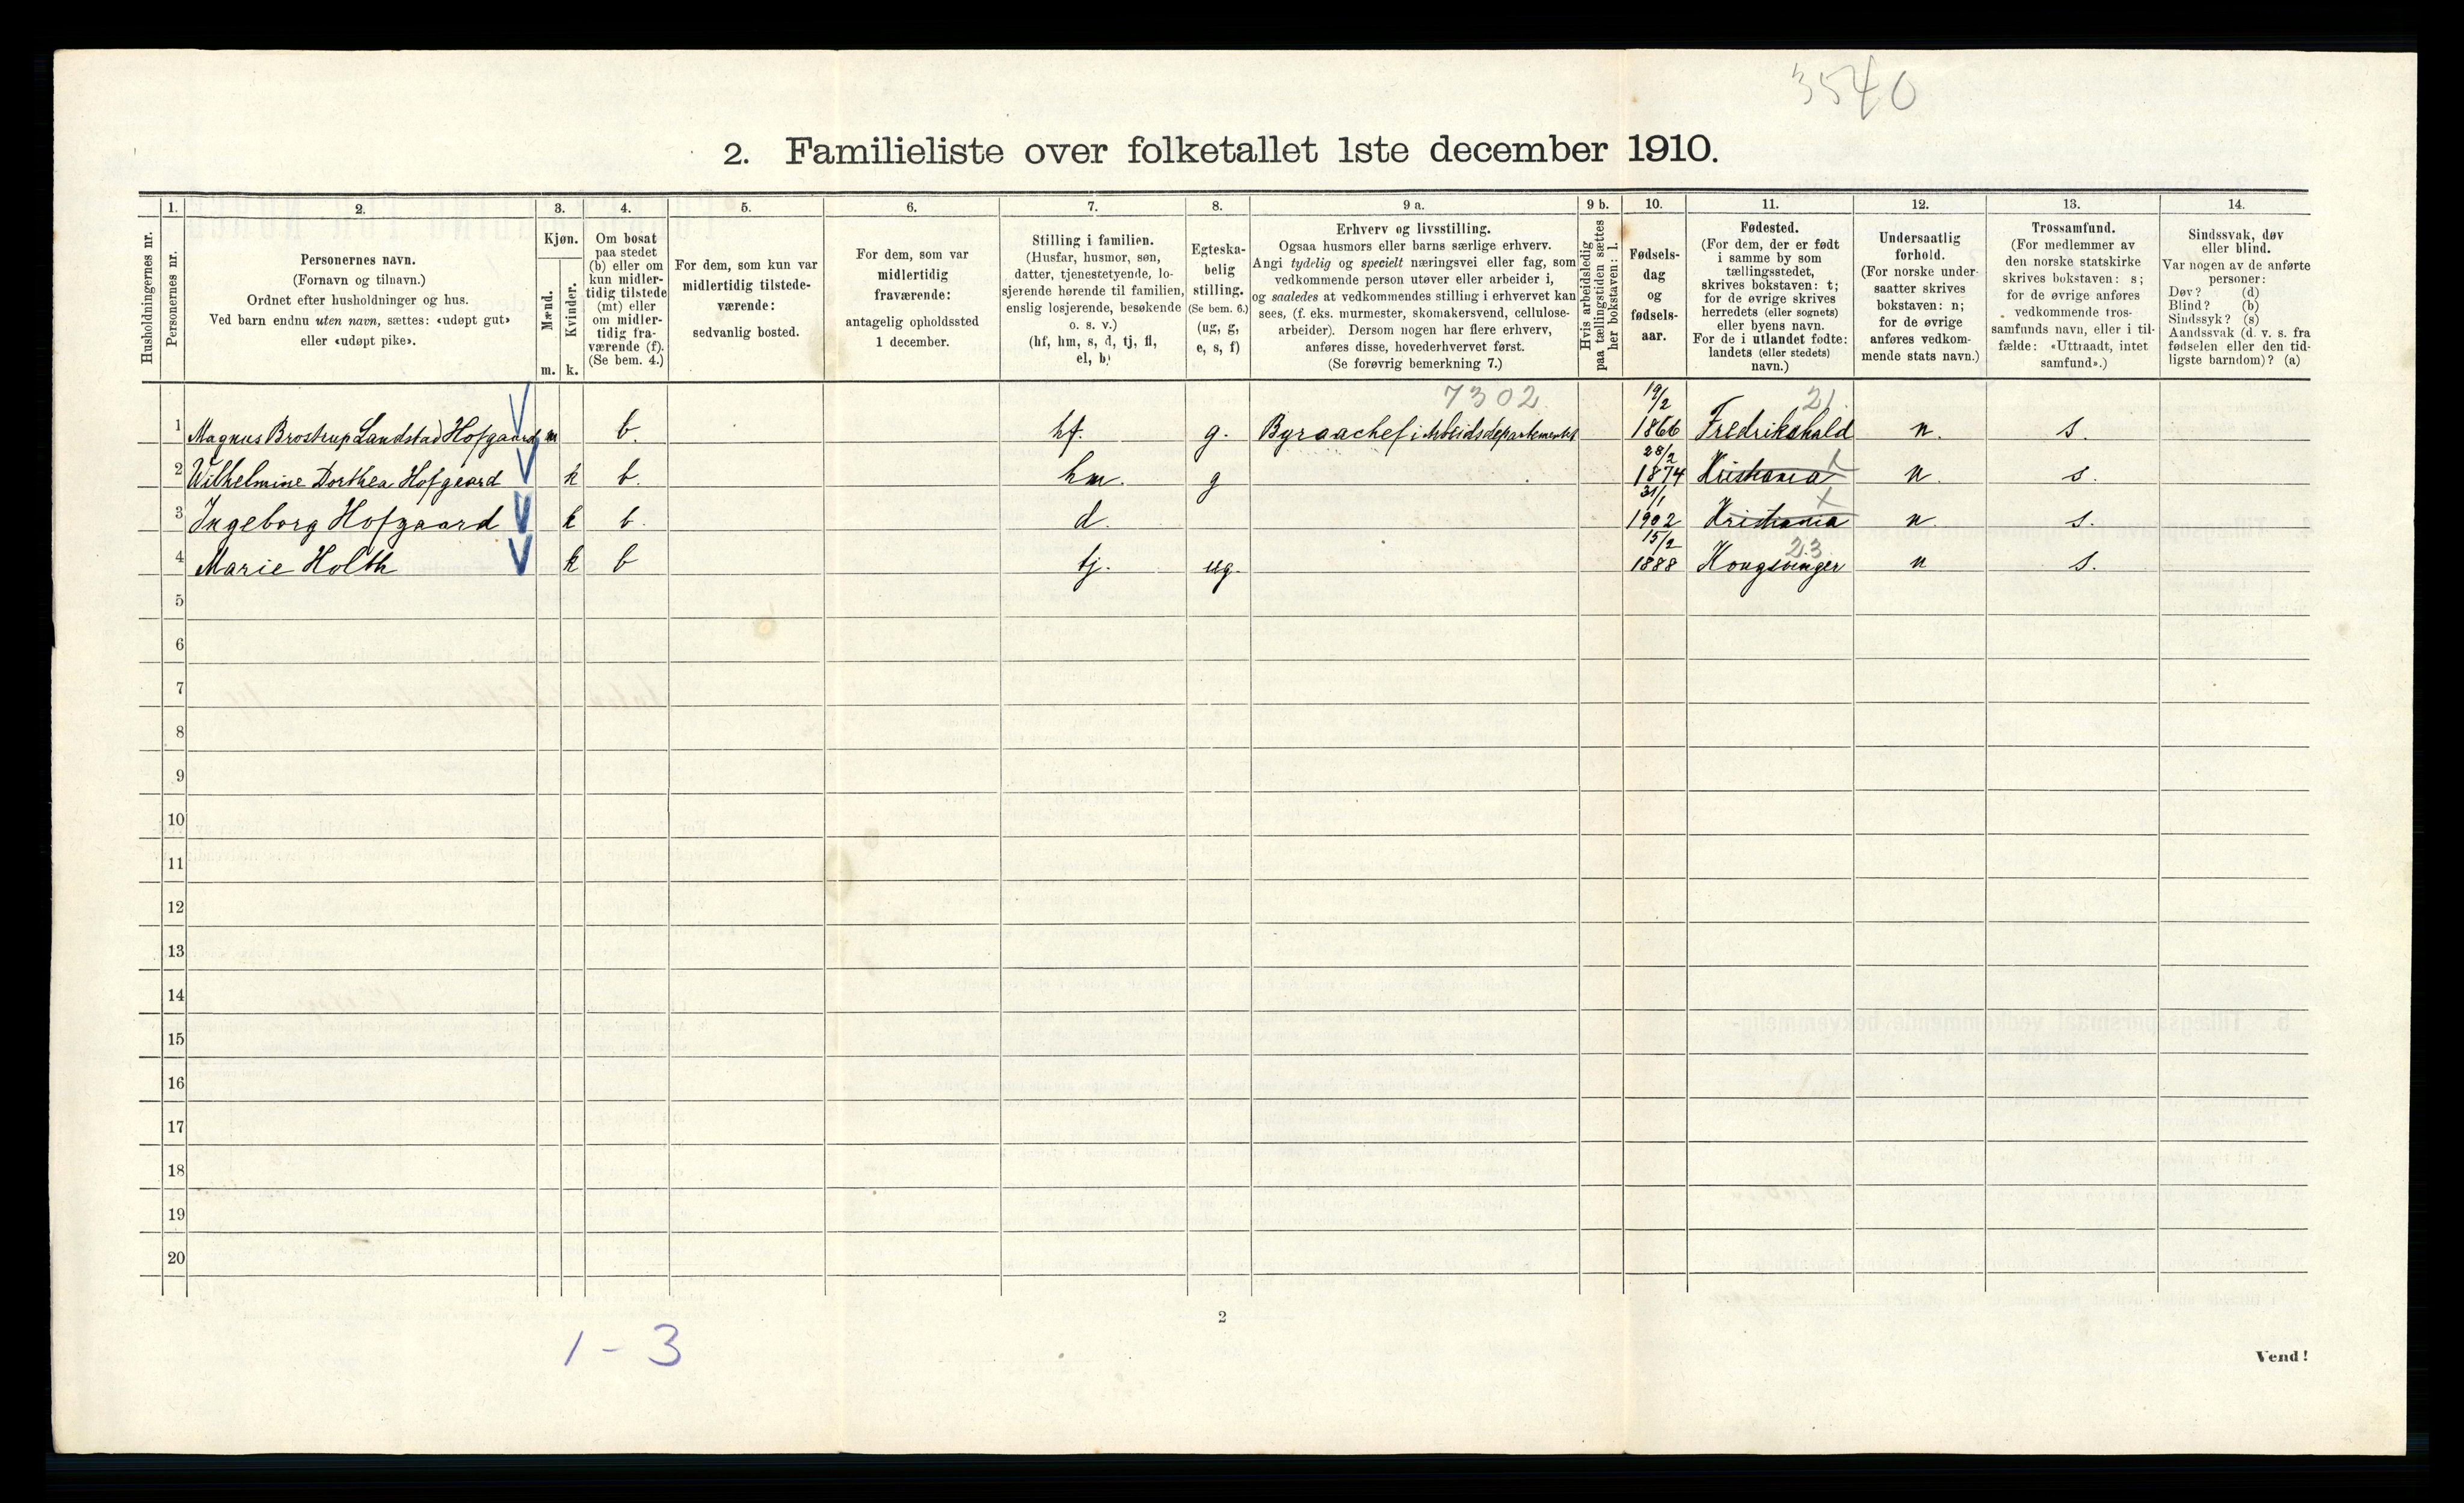 3540
2. Familieliste over folketallet 1ste december 1910.
Husholdningernes nr.
1.
Personernes nr.
2.
Personernes navn.
(Fornavn og tilnavn.)
Ordnet efter husholdninger og hus.
Ved barn endnu uten navn, sættes: «udøpt gut»
eller «udøpt pike».
3.
Kjøn.
Mænd.
Kvinder.
m. k.
4.
Om bosat
paa stedet
(b) eller om
kun midler-
tidig tilstede
(mt) eller
om midler-
tidig fra-
værende (f).
(Se bem. 4.)
5.
For dem, som kun var
midlertidig tilstede-
værende:
sedvanlig bosted.
6.
For dem, som var
midlertidig
fraværende:
antagelig opholdssted
1 december.
7.
Stilling i familien.
(Husfar, husmor, søn,
datter, tjenestetyende, lo-
sjerende hørende til familien,
enslig losjerende, besøkende
o. s. v.)
(hf, hm, s, d, tj, fl,
el, b)
8.
Egteska-
belig
stilling.
(Se bem. 6.)
(ug, g,
e, s, f)
9 a.
Erhverv og livsstilling.
Ogsaa husmors eller barns særlige erhverv.
Angi tydelig og specielt næringsvei eller fag, som
vedkommende person utøver eller arbeider i,
og saaledes at vedkommendes stilling i erhvervet kan
sees, (f. eks. murmester, skomakersvend, cellulose-
arbeider). Dersom nogen har flere erhverv,
anføres disse, hovederhvervet først.
(Se forøvrig bemerkning 7.)
9 b.
Hvis arbeidsledig
paa tællingstiden sættes
her bokstaven: l.
10.
Fødsels-
dag
og
fødsels-
aar.
11.
Fødested.
(For dem, der er født
i samme by som
tællingsstedet,
skrives bokstaven: t;
for de øvrige skrives
herredets (eller sognets)
eller byens navn.
For de i utlandet fødte:
landets (eller stedets)
navn.)
12.
Undersaatlig
forhold.
(For norske under-
saatter skrives
bokstaven: n;
for de øvrige
anføres vedkom-
mende stats navn.)
13.
Trossamfund.
(For medlemmer av
den norske statskirke
skrives bokstaven: s;
for de øvrige anføres
vedkommende tros-
samfunds navn, eller i til-
fælde: «Uttraadt, intet
samfund».)
14.
Sindssvak, døv
eller blind.
Var nogen av de anførte
personer:
Døv? (d)
Blind? (b)
Sindssyk? (s)
Aandssvak (d. v. s. fra
fødselen eller den tid-
ligste barndom)? (a)
7302 19/2 21
1 Magnus Brostrup Landstad Hofgaard m b. hf. g. Byraachef i Arbeidsdepartementet 1866 Fredrikshald n. s.
28/2
2 Wilhelmine Dorthea Hofgaard k b. hm. g 1874 Kristiania t n. s.
31/1
3 Ingeborg Hofgaard k b. d. 1902 Kristiania n. s.
15/2 23
4 Marie Holth k b tj. ug. 1888 Kongsvinger n s.
5
6
7
8
9
10
11
12
13
14
15
16
17
18
19
20
2
1 - 3
Vend!